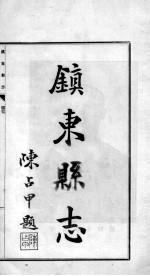 鎮東縣志
陳占甲題